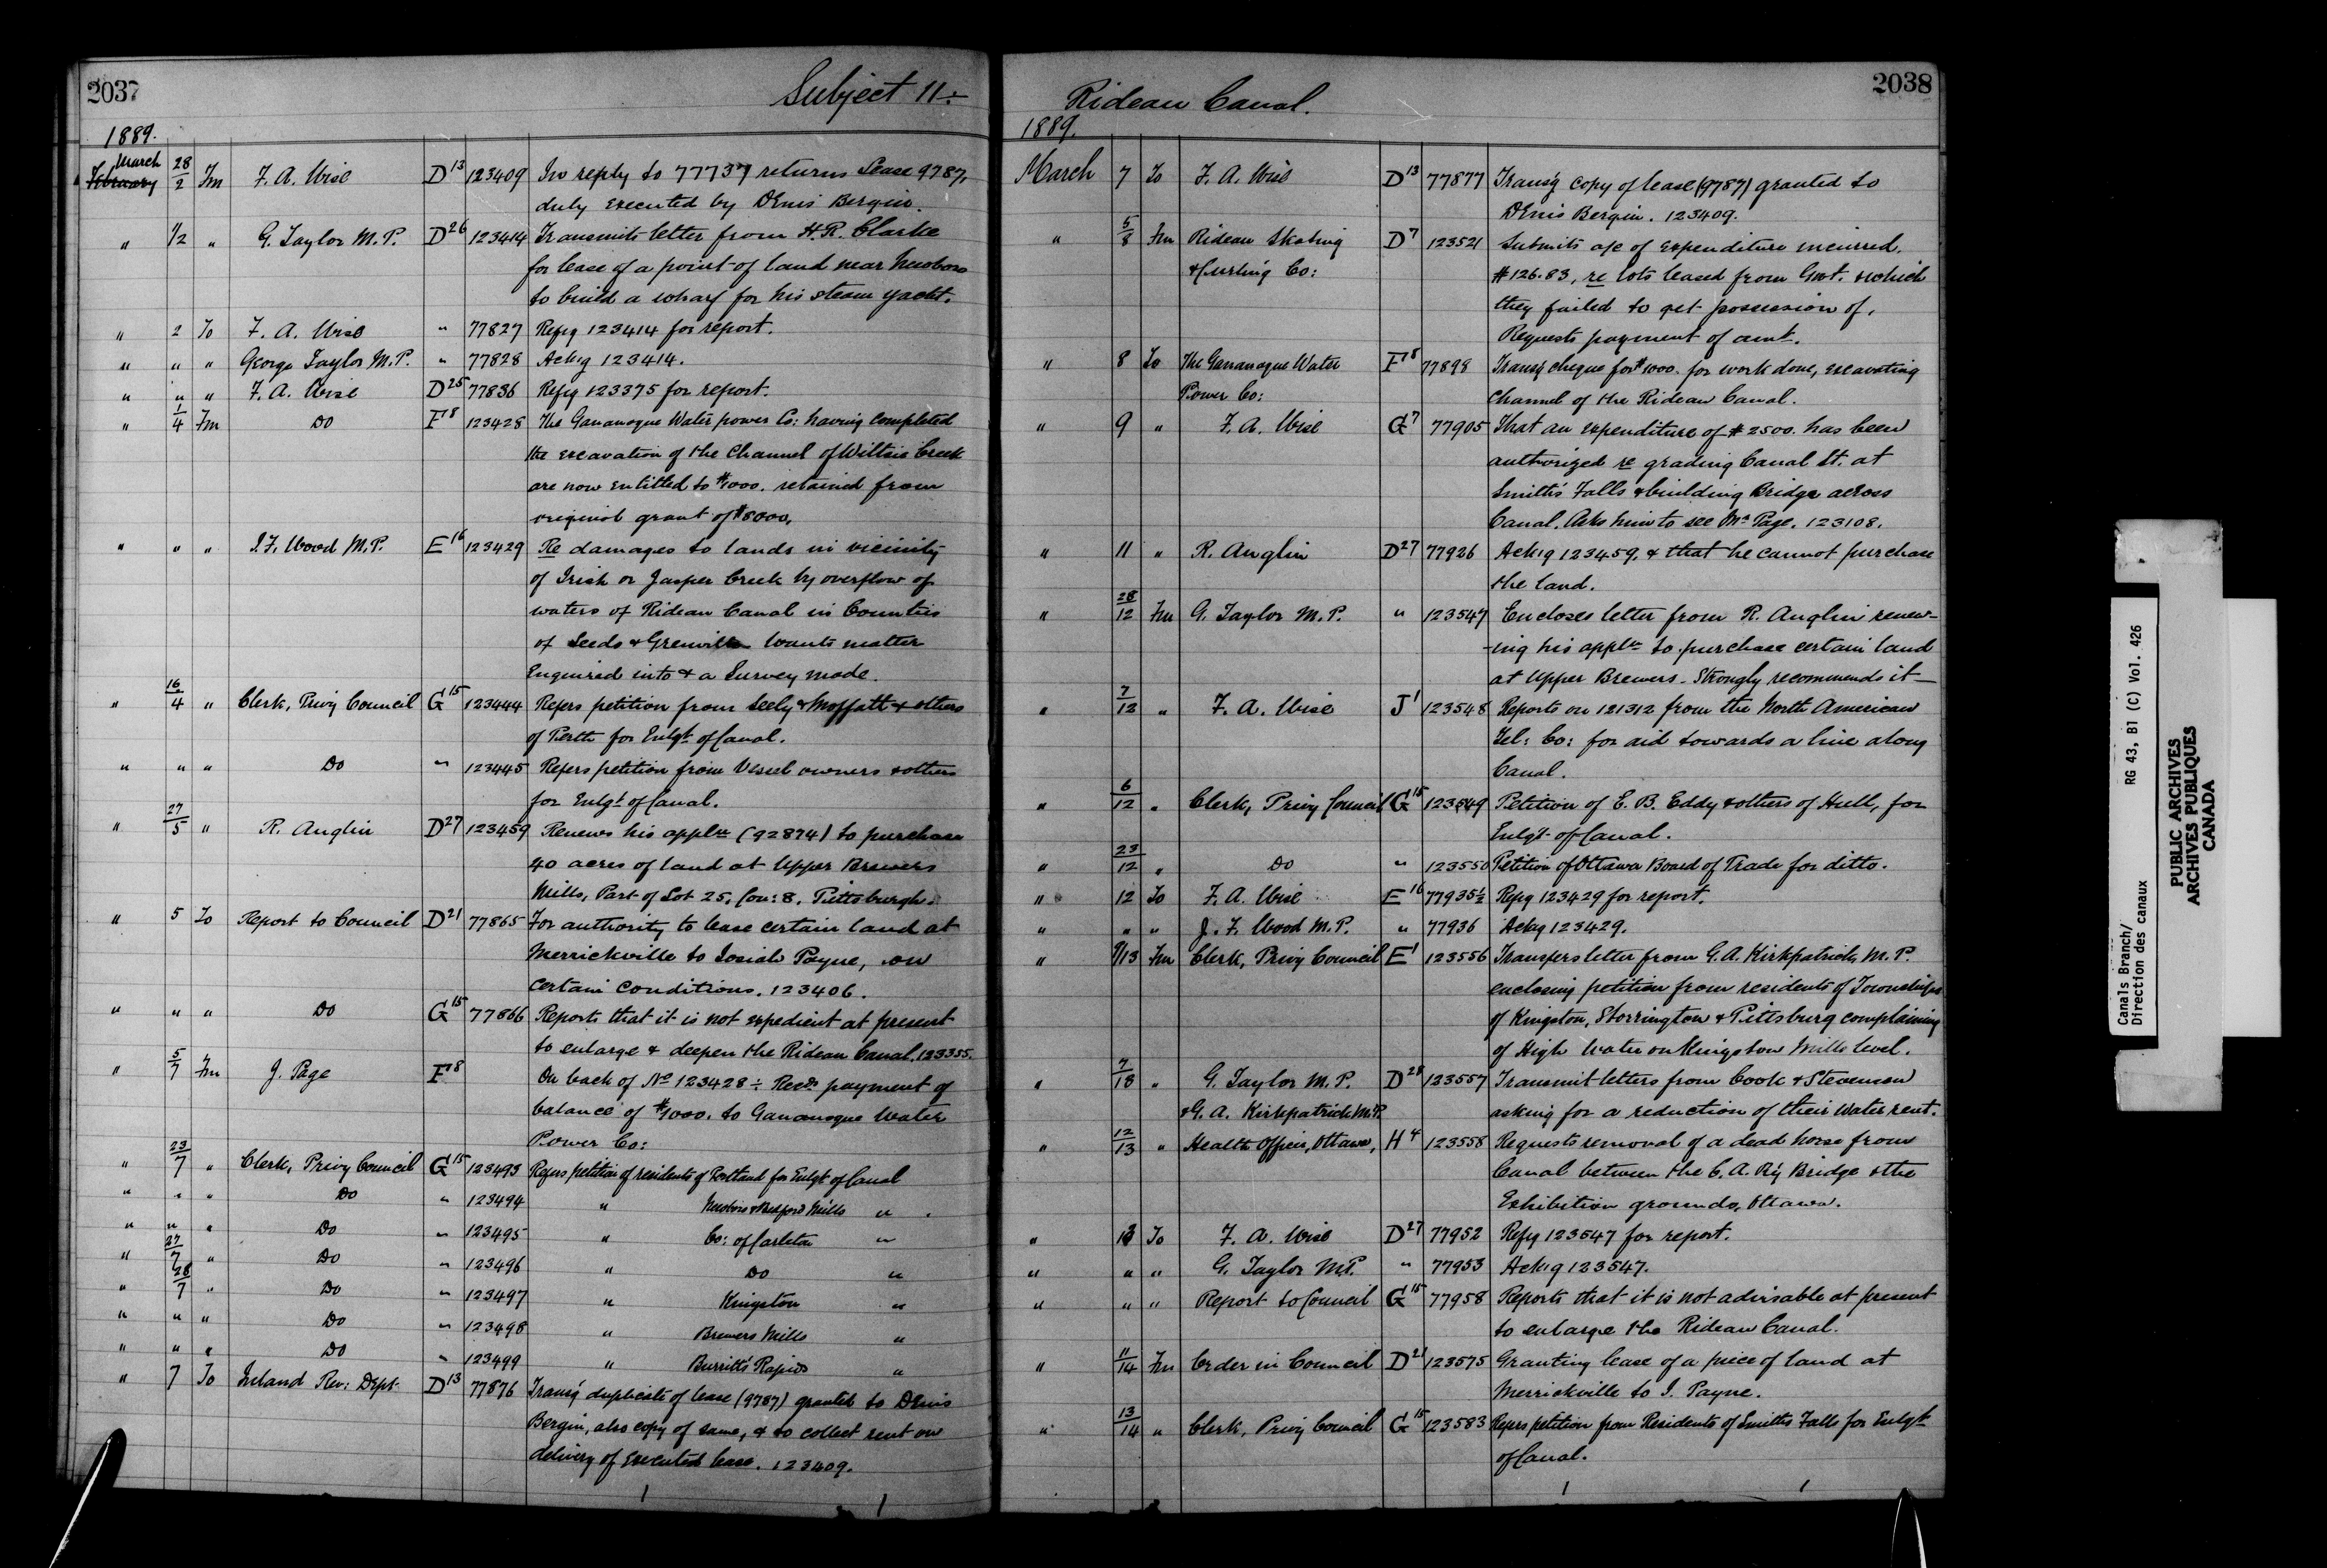 2037
Subject 11 ÷
1889.
March
February 28/2 Fm F. A. Wise D13 123409 In reply to 77737 returns Lease 9787,
duly executed by Denis Bergin.
" 1/2 " G. Taylor M.P. D26 123414 Transmits letter from H. R. Clarke
for lease of a point of land near Newboro
to build a wharf for his steam yacht.
" 2 To F. A. Wise " 77827 Refg 123414 for report.
" " " George Taylor M.P. " 77828 Ackg 123414.
" " " F. A. Wise D25 77836 Refg 123375 for report.
" 1/4 Fm Do F18 123428 The Gananoque Water power Co: having completed
the excavation of the Channel of Wiltsie Creek
are now entitled to $1000. retained from
original grant of $8000.
" " " J. F. Wood M.P. E16 123429 Re damages to lands in vicinity
of Irish or Jasper Creek by overflow of
waters of Rideau Canal in Counties
of Leeds & Grenville wants matter
Enquired into & a Survey made.
" 16/4 " Clerk, Privy Council G15 123444 Refers petition from Seely & Moffatt & others
of Perth for Enlgt of Canal.
" " " Do " 123445 Refers petition from Vessel owners & others
for Enlgt of Canal.
" 27/5 " R. Anglin D27 123459 Renews his appln (92874) to purchase
40 acres of land at Upper Brewers
Mills, Part of Lot 25, Con: 8, Pittsburgh.
" 5 To Report to Council D21 77865 For authority to lease certain land at
Merrickville to Josiah Payne, on
certain conditions. 123406.
" " " Do G15 77866 Reports that it is not expedient at present
to enlarge & deepen the Rideau Canal. 123355.
" 5/7 Fm J. Page F18 On back of No 123428 ÷ Recds payment of
balance of $1000. to Gananoque Water
Power Co:
" 23/7 " Clerk, Privy Council G15 123493 Refers petition of residents of Portland for Enlgt of Canal
" " " Do " 123494 " Newboro & Bedford Mills "
" " " Do " 123495 " Co: of Carleton "
" 27/7 " Do " 123496 " Do "
" 28/7 " Do " 123497 " Kingston "
" " " Do " 123498 " Brewers Mills "
" " " Do " 123499 " Burritts Rapids "
" 7 To Inland Rev: Dept. D13 77876 Transg duplicate of lease (9787) granted to Denis
Bergin, also copy of same, & to collect rent on
delivery of executed lease. 123409.
2038
Rideau Canal.
1889.
March 7 To F. A. Wise D13 77877 Transg copy of lease (9787) granted to
Denis Bergin. 123409.
" 5/8 Fm Rideau Skating D7 123521 Submits a/c of expenditure incurred.
& Curling Co: $126.83, re lots leased from Govt. & which
they failed to get possession of.
Requests payment of amt.
" 8 To The Gananoque Water F18 77898 Transg cheque for $1000. for work done, excavating
Power Co: Channel of the Rideau Canal.
" 9 " F. A. Wise G7 77905 That an expenditure of $2500. has been
authorized re grading Canal St. at
Smiths Falls & building Bridge across
Canal. Asks him to see Mr Page. 123108.
" 11 " R. Anglin D27 77926 Ackg 123459. & that he cannot purchase
the land.
" 28/12 Fm G. Taylor M.P. " 123547 Encloses letter from R. Anglin renew-
-ing his appln to purchase certain land
at Upper Brewers. Strongly recommends it —
" 7/12 " F. A. Wise J1 123548 Reports on 121312 from the North American
Tel: Co: for aid towards a line along
Canal.
" 6/12 " Clerk, Privy Council G15 123549 Petition of E. B. Eddy & others of Hull, for
Enlgt of Canal.
" 23/12 " Do " 123550 Petition of Ottawa Board of Trade for ditto.
" 12 To F. A. Wise E16 77935½ Refg 123429 for report.
" " " J. F. Wood M.P. " 77936 Ackg 123429.
" 9/13 Fm Clerk, Privy Council E1 123556 Transfers letter from G. A. Kirkpatrick, M.P.
enclosing petition from residents of Townships
of Kingston, Storrington & Pittsburg complaining
of High Water on Kingston Mills level.
" 7/13 " G. Taylor M.P. D28 123557 Transmit letters from Cook & Stevenson
& G. A. Kirkpatrick M.P. asking for a reduction of their water rent.
" 12/13 " Health Officer, Ottawa, H4 123558 Requests removal of a dead horse from
Canal between the C. A. Ry Bridge & the
Exhibition grounds, Ottawa.
" 13 To F. A. Wise D27 77952 Refg 123547 for report.
" " " G. Taylor M.P. " 77953 Ackg 123547.
" " " Report to Council G15 77958 Reports that it is not advisable at present
to enlarge the Rideau Canal.
" 11/14 Fm Order in Council D21 123575 Granting lease of a piece of land at
Merrickville to J. Payne.
" 13/14 " Clerk, Privy Council G15 123583 Refers petition from Residents of Smiths Falls for Enlgt
of Canal.
Canals Branch/
Direction des canaux
RG 43, B1 (C) Vol. 426
PUBLIC ARCHIVES
ARCHIVES PUBLIQUES
CANADA